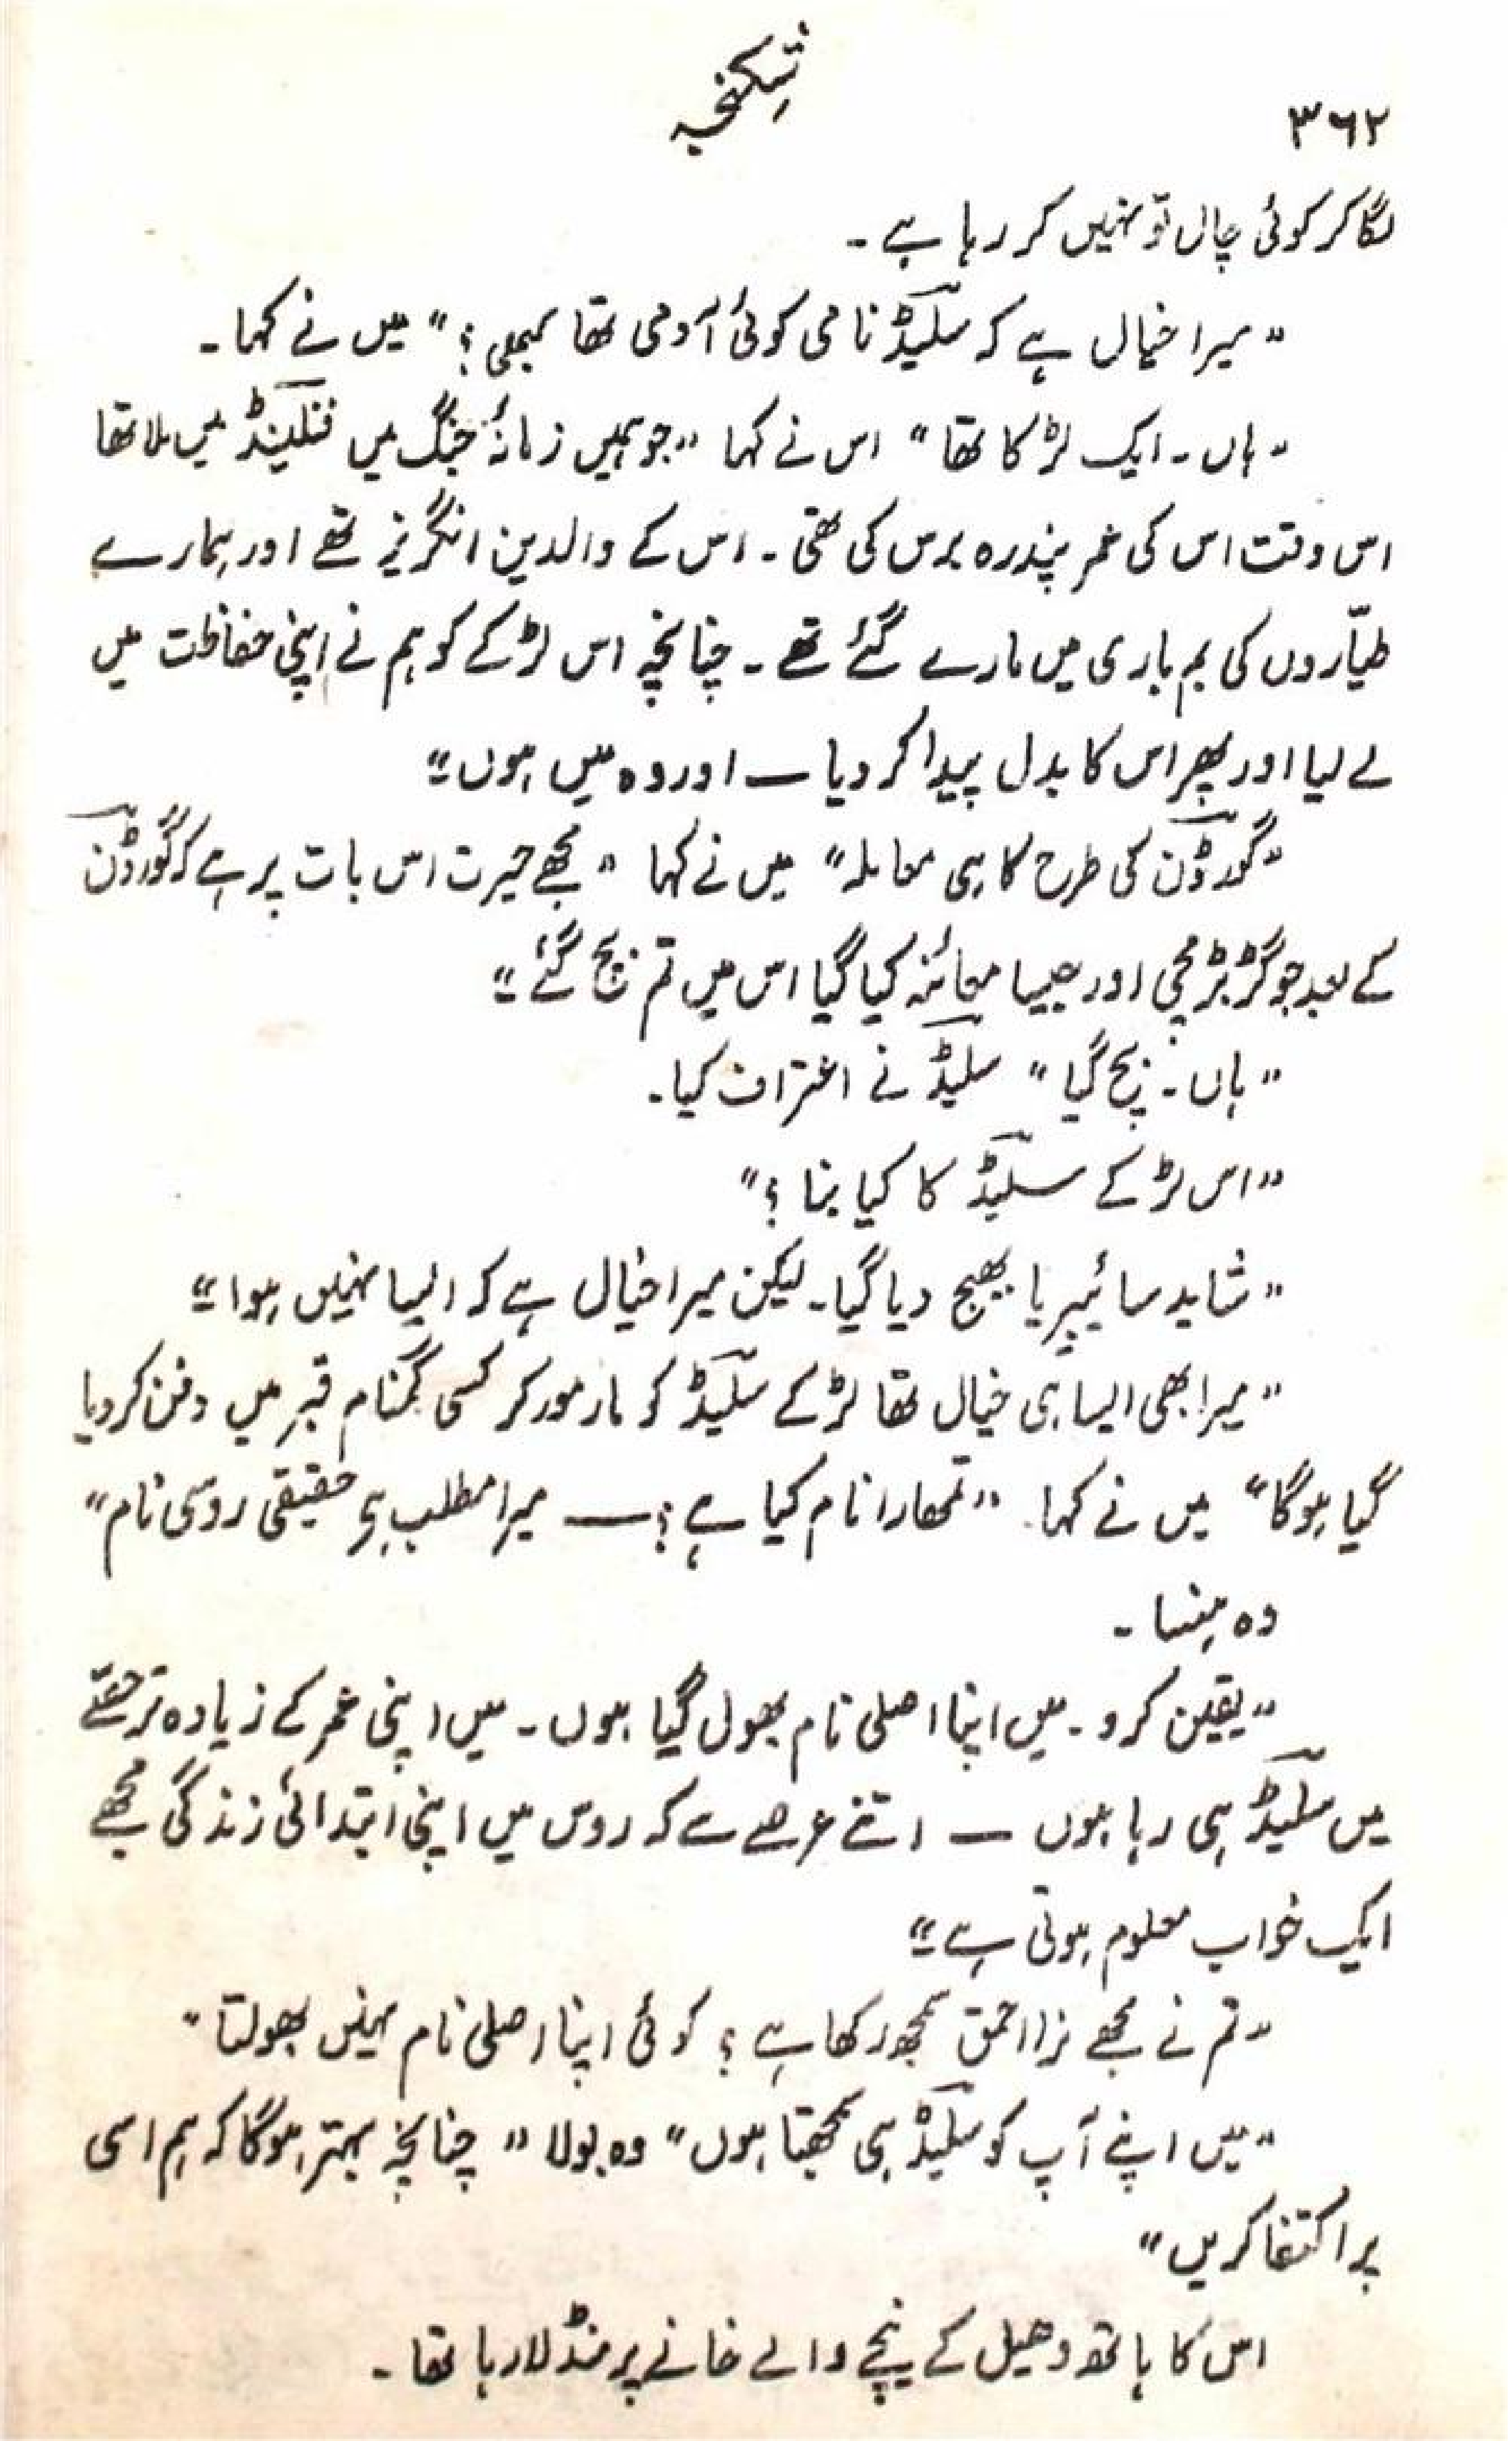 شکنجہ
۳۶۲
لگا کر کوئی چال تو نہیں کر رہا ہے ۔
”میرا خیال ہے کہ سلیڈ نامی کوئی آدمی تھا کبھی؟“ میں نے کہا ۔
”ہاں ۔ ایک لڑکا تھا“ اس نے کہا ”جو ہمیں زمانۂ جنگ میں فنلینڈ میں ملا تھا
اس وقت اس کی عمر پندرہ برس کی تھی ۔ اس کے والدین انگریز تھے اور ہمارے
طیّاروں کی بم باری میں مارے گئے تھے ۔ چنانچہ اس لڑکے کو ہم نے اپنی حفاظت میں
لے لیا اور پھر اس کا بدل پیدا کر دیا — اور وہ میں ہوں“
”گورڈن کی طرح کا ہی معاملہ“ میں نے کہا ”مجھے حیرت اس بات پر ہے کہ گورڈن
کے بعد جو گڑبڑ مچی اور جیسا معائنہ کیا گیا اس میں تم بچ گئے“
”ہاں ۔ بچ گیا“ سلیڈ نے اعتراف کیا ۔
”اس لڑکے سلیڈ کا کیا بنا؟“
”شاید سائیبیریا بھیج دیا گیا ۔ لیکن میرا خیال ہے کہ ایسا نہیں ہوا“
”میرا بھی ایسا ہی خیال تھا لڑکے سلیڈ کو مار مور کر کسی گمنام قبر میں دفن کر دیا
گیا ہوگا“ میں نے کہا ۔ ”تمھارا نام کیا ہے؟ — میرا مطلب ہے حقیقی روسی نام“
وہ ہنسا ۔
”یقین کرو ۔ میں اپنا اصلی نام بھول گیا ہوں ۔ میں اپنی عمر کے زیادہ تر حصّے
میں سلیڈ ہی رہا ہوں — اتنے عرصے سے کہ روس میں اپنی ابتدائی زندگی مجھے
ایک خواب معلوم ہوتی ہے“
”تم نے مجھے نرا احمق سمجھ رکھا ہے؟ کوئی اپنا اصلی نام نہیں بھولتا“
”میں اپنے آپ کو سلیڈ ہی سمجھتا ہوں“ وہ بولا ”چنانچہ بہتر ہوگا کہ ہم اسی
پر اکتفا کریں“
اس کا ہاتھ وھیل کے نیچے والے خانے پر منڈلا رہا تھا ۔